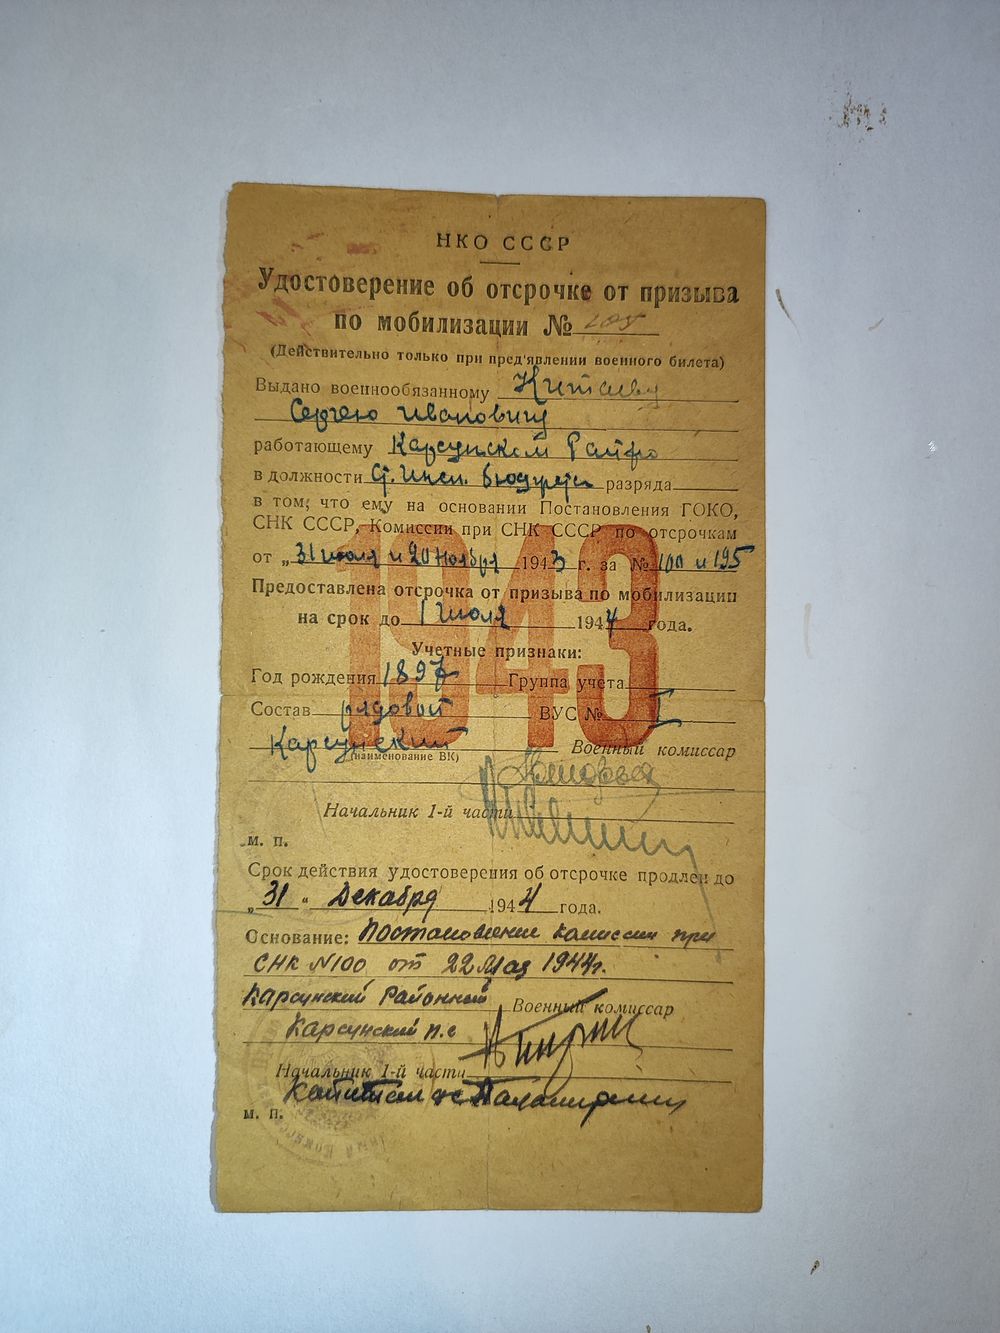 НКО СССР
Удостоверение об отсрочке от призыва
по мобилизации №
(Действительно только при пред'явлении военного билета)
Выдано военнообязанному Китаеву
Сергею Ивановичу
работающему Карсунском Райфо
в должности Ст. Инсп. Бюджета разряда
в том, что ему на основании Постановления ГОКО,
СНК СССР, Комиссии при СНК СССР по отсрочкам
от „31 июля и 20 Ноября 1943 г. за № 100 и 195
Предоставлена отсрочка от призыва по мобилизации
на срок до 1 Июля 1944 года.
1943
Учетные признаки:
Год рождения 1897 Группа учета
Состав рядовой ВУС № I
Карсунский Военный комиссар
(наименование ВК)
Начальник 1-й части
м. п.
Срок действия удостоверения об отсрочке продлен до
„31" Декабря 1944 года.
Основание: Постановление Комиссии при
СНК N100 от 22 Мая 1944г.
Карсунский Районный Военный комиссар
Карсунский п.с
Начальник 1-й части
Капитан
м. п.